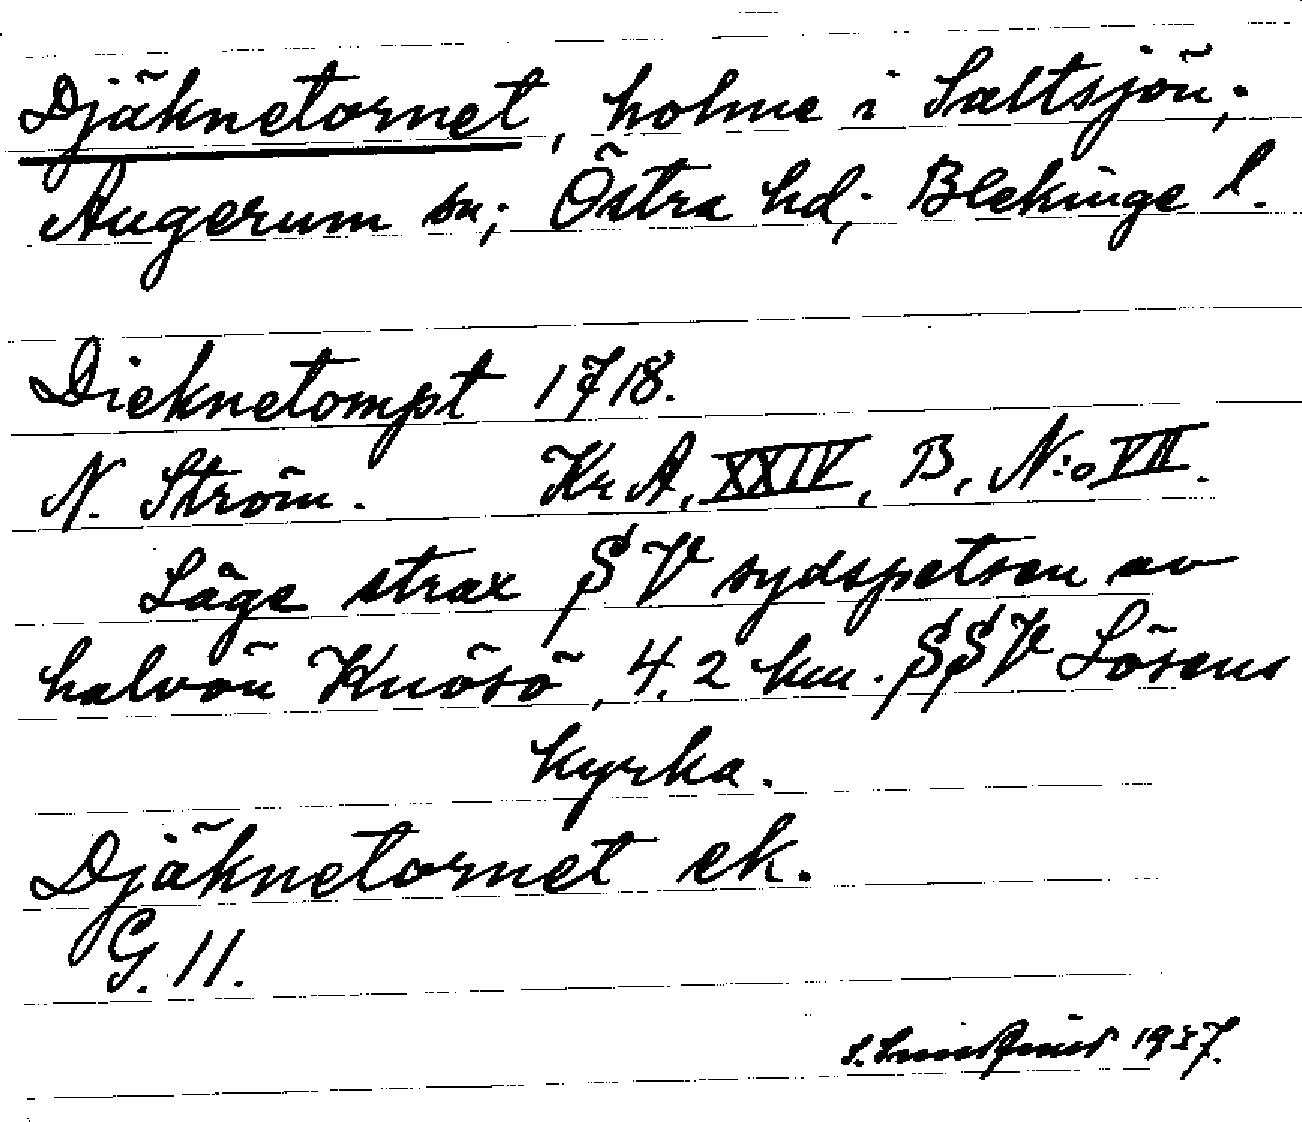 Djäknetornet, holme i Saltsjön;
Augerum sn; Östra hd; Blekinge l.
Dieknetompt 1718.
N. Ström. Kr A, XXIV, B, N:o VII.
Läge strax S V sydspetsen av
halvön Knösö, 4,2 km. SSV Lösens
kyrka.
Djäknetornet ek.
G. 11.
1937.